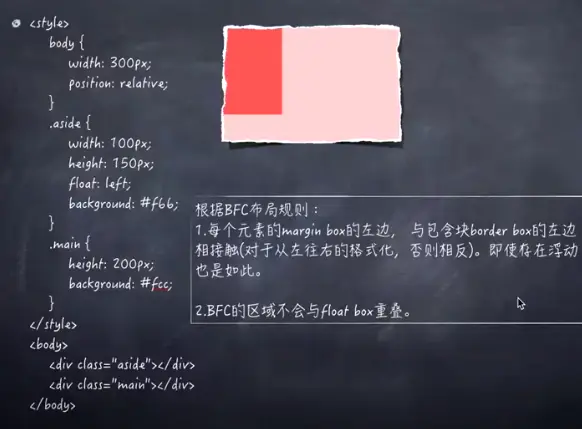 <style>
body {
width: 300px;
position: relative;
}
.aside {
width: 100px;
height: 150px;
float: left;
background: #f66;
}
.main {
height: 200px;
background: #fcc;
}
</style>
<body>
<div class="aside"></div>
<div class="main"></div>
</body>
根据BFC布局规则：
1.每个元素的margin box的左边， 与包含块border box的左边
相接触(对于从左往右的格式化，否则相反)。即使存在浮动
也是如此。
2.BFC的区域不会与float box重叠。